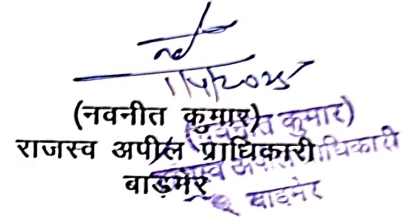 1/4/2025
(नवनीत कुमार)
राजस्व अपील प्राधिकारी
बाड़मेर
(नवनीत कुमार)
राजस्व अपील प्राधिकारी
बाडमेर